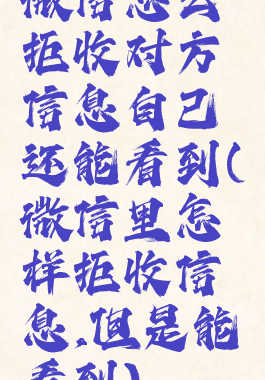 微信怎么
拒收对方
信息自己
还能看到(
微信里怎
样拒收信
息,但是能
看到)